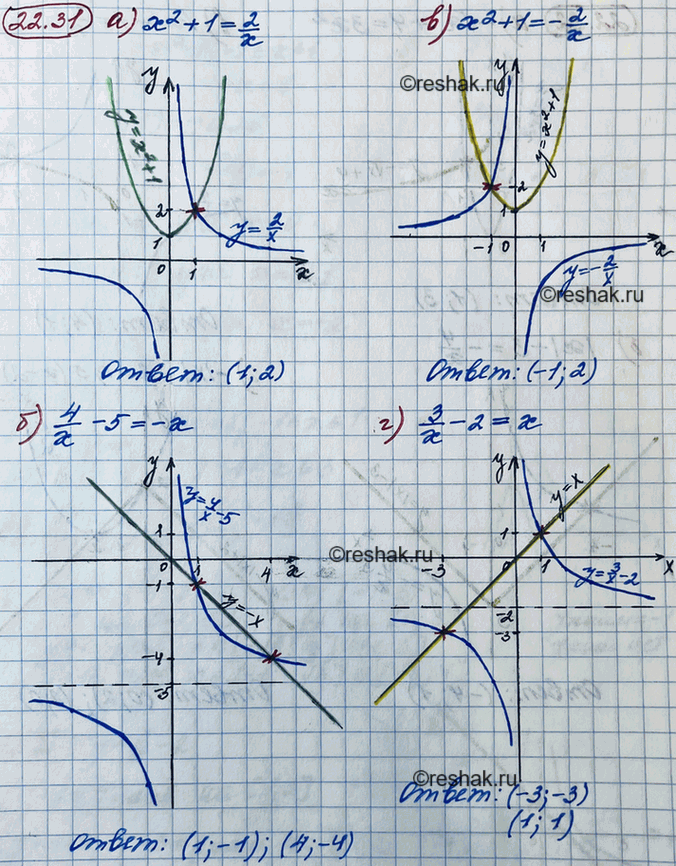 22.31 а) x²+1=2/x
в) x²+1=-2/x
©reshak.ru
y
y=x²+1
2
1
y=2/x
0
1
x
Ответ: (1;2)
y
y=x²+1
2
1
-1
0
1
x
y=-2/x
©reshak.ru
Ответ: (-1;2)
б) 4/x -5=-x
г) 3/x -2=x
y
y=4/x-5
1
0
1
4
x
-1
y=-x
-4
-5
©reshak.ru
y
y=x
1
-3
0
1
x
y=3/x-2
-2
-3
©reshak.ru
Ответ: (-3;-3)
(1;1)
Ответ: (1;-1); (4;-4)